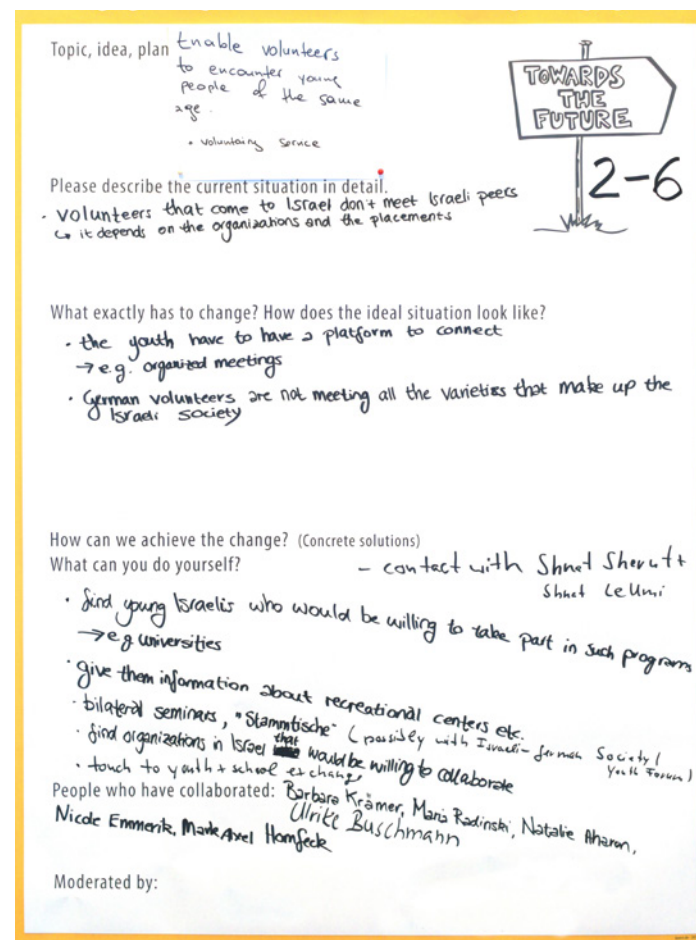 Topic, idea, plan Enable volunteers
to encounter young
people of the same
age.
• voluntairy service
TOWARDS
THE
FUTURE
2-6
Please describe the current situation in detail.
• volunteers that come to Israel don't meet Israeli peers
↳ it depends on the organizations and the placements
What exactly has to change? How does the ideal situation look like?
• the youth have to have a platform to connect
→ e.g. organized meetings
• German volunteers are not meeting all the varieties that make up the
Israeli society
How can we achieve the change? (Concrete solutions)
What can you do yourself?
– contact with Shnat Sherutt
Shnat Leumi
• find young Israelis who would be willing to take part in such programs
→ e.g universities
• give them information about recreational centers etc.
• bilateral seminars, "Stammtische" (possibly with Israeli-german Society /
Youth Forum)
• find organizations in Israel that would be willing to collaborate
• touch to youth + school exchange
People who have collaborated: Barbara Krämer, Maria Radinski, Natalie Aharon,
Ulrike Buschmann
Nicole Emmerik, Mark Axel Homfeck
Moderated by: